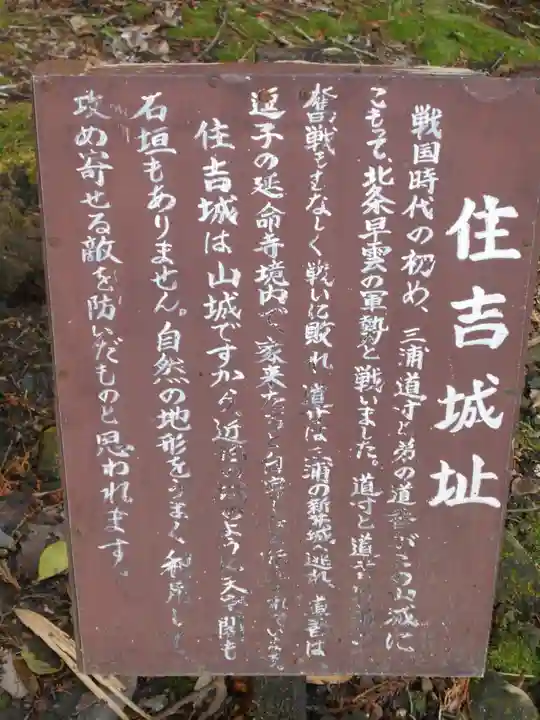 住吉城址
戦国時代の初め、三浦道寸と弟の道香がこの山城に
こもって、北条早雲の軍勢と戦いました。道寸と道香は
奮戦もむなしく戦いに敗れ、道寸は三浦の新井城へ逃れ、道香は、
逗子の延命寺境内で、家来たちと自害したと伝えられています。
住吉城は山城ですから、近世の城のように天守閣も
石垣もありません。自然の地形をうまく利用して
攻め寄せる敵を防いだものと思われます。